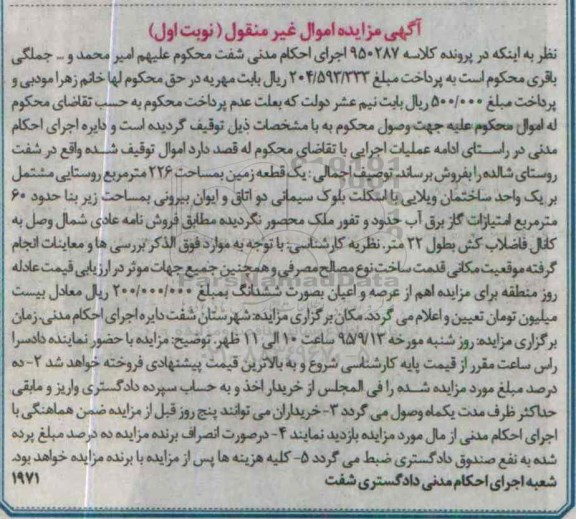 آگهی مزایده اموال غیر منقول ( نوبت اول)
نظر به اینکه در پرونده کلاسه ۹۵۰۲۸۷ اجرای احکام مدنی شفت محکوم علیهم امیر محمد و ... جملگی
باقری محکوم است به پرداخت مبلغ ۲۰۴/۵۹۳/۳۳۳ ریال بابت مهریه در حق محکوم لها خانم زهرا مودبی و
پرداخت مبلغ ۵۰۰/۰۰۰ ریال بابت نیم عشر دولت که بعلت عدم پرداخت محکوم به حسب تقاضای محکوم
له اموال محکوم علیه جهت وصول محکوم به با مشخصات ذیل توقیف گردیده است و دایره اجرای احکام
مدنی در راستای ادامه عملیات اجرایی با تقاضای محکوم له قصد دارد اموال توقیف شده واقع در شفت
روستای شالده را بفروش برساند. توصیف اجمالی : یک قطعه زمین بمساحت ۲۲۶ مترمربع روستایی مشتمل
بر یک واحد ساختمان ویلایی با اسکلت بلوک سیمانی دو اتاق و ایوان بیرونی بمساحت زیر بنا حدود ۶۰
مترمربع امتیازات گاز برق آب حدود و ثفور ملک محصور نگردیده مطابق فروش نامه عادی شمال وصل به
کانال فاضلاب کش بطول ۲۲ متر. نظریه کارشناسی: با توجه به موارد فوق الذکر بررسی ها و معاینات انجام
گرفته موقعیت مکانی قدمت ساخت نوع مصالح مصرفی و همچنین جمیع جهات موثر در ارزیابی قیمت عادله
روز منطقه برای مزایده اهم از عرصه و اعیان بصورت ششدانگ بمبلغ ۲۰۰/۰۰۰/۰۰۰ ریال معادل بیست
میلیون تومان تعیین و اعلام می گردد. مکان برگزاری مزایده: شهرستان شفت دایره اجرای احکام مدنی. زمان
برگزاری مزایده: روز شنبه مورخه ۹۵/۹/۱۳ ساعت ۱۰ الی ۱۱ ظهر. توضیح: مزایده با حضور نماینده دادسرا
راس ساعت مقرر از قیمت پایه کارشناسی شروع و به بالاترین قیمت پیشنهادی فروخته خواهد شد ۲- ده
درصد مبلغ مورد مزایده شده را فی المجلس از خریدار اخذ و به حساب سپرده دادگستری واریز و مابقی
حداکثر ظرف مدت یکماه وصول می گردد ۳- خریداران می توانند پنج روز قبل از مزایده ضمن هماهنگی با
اجرای احکام مدنی از مال مورد مزایده بازدید نمایند ۴- درصورت انصراف برنده مزایده ده درصد مبلغ برده
شده به نفع صندوق دادگستری ضبط می گردد ۵- کلیه هزینه ها پس از مزایده با برنده مزایده خواهد بود.
شعبه اجرای احکام مدنی دادگستری شفت ۱۹۷۱